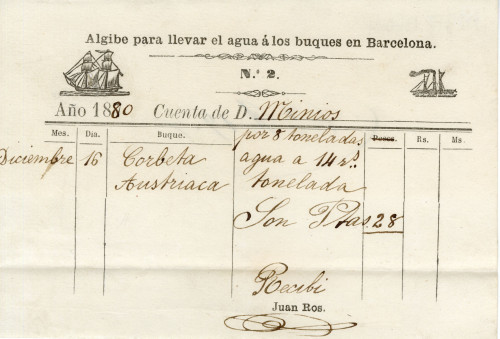 Algibe para llevar el agua á los buques en Barcelona.
N.º 2.
Año 1880 Cuenta de D. Minios
Mes. Dia. Buque. Pesos. Rs. Ms
por 8 toneladas
Diciembre 16 Corbeta agua a 14 rs.
Austriaca tonelada
Son Ptas. 28
Recibi
Juan Ros.